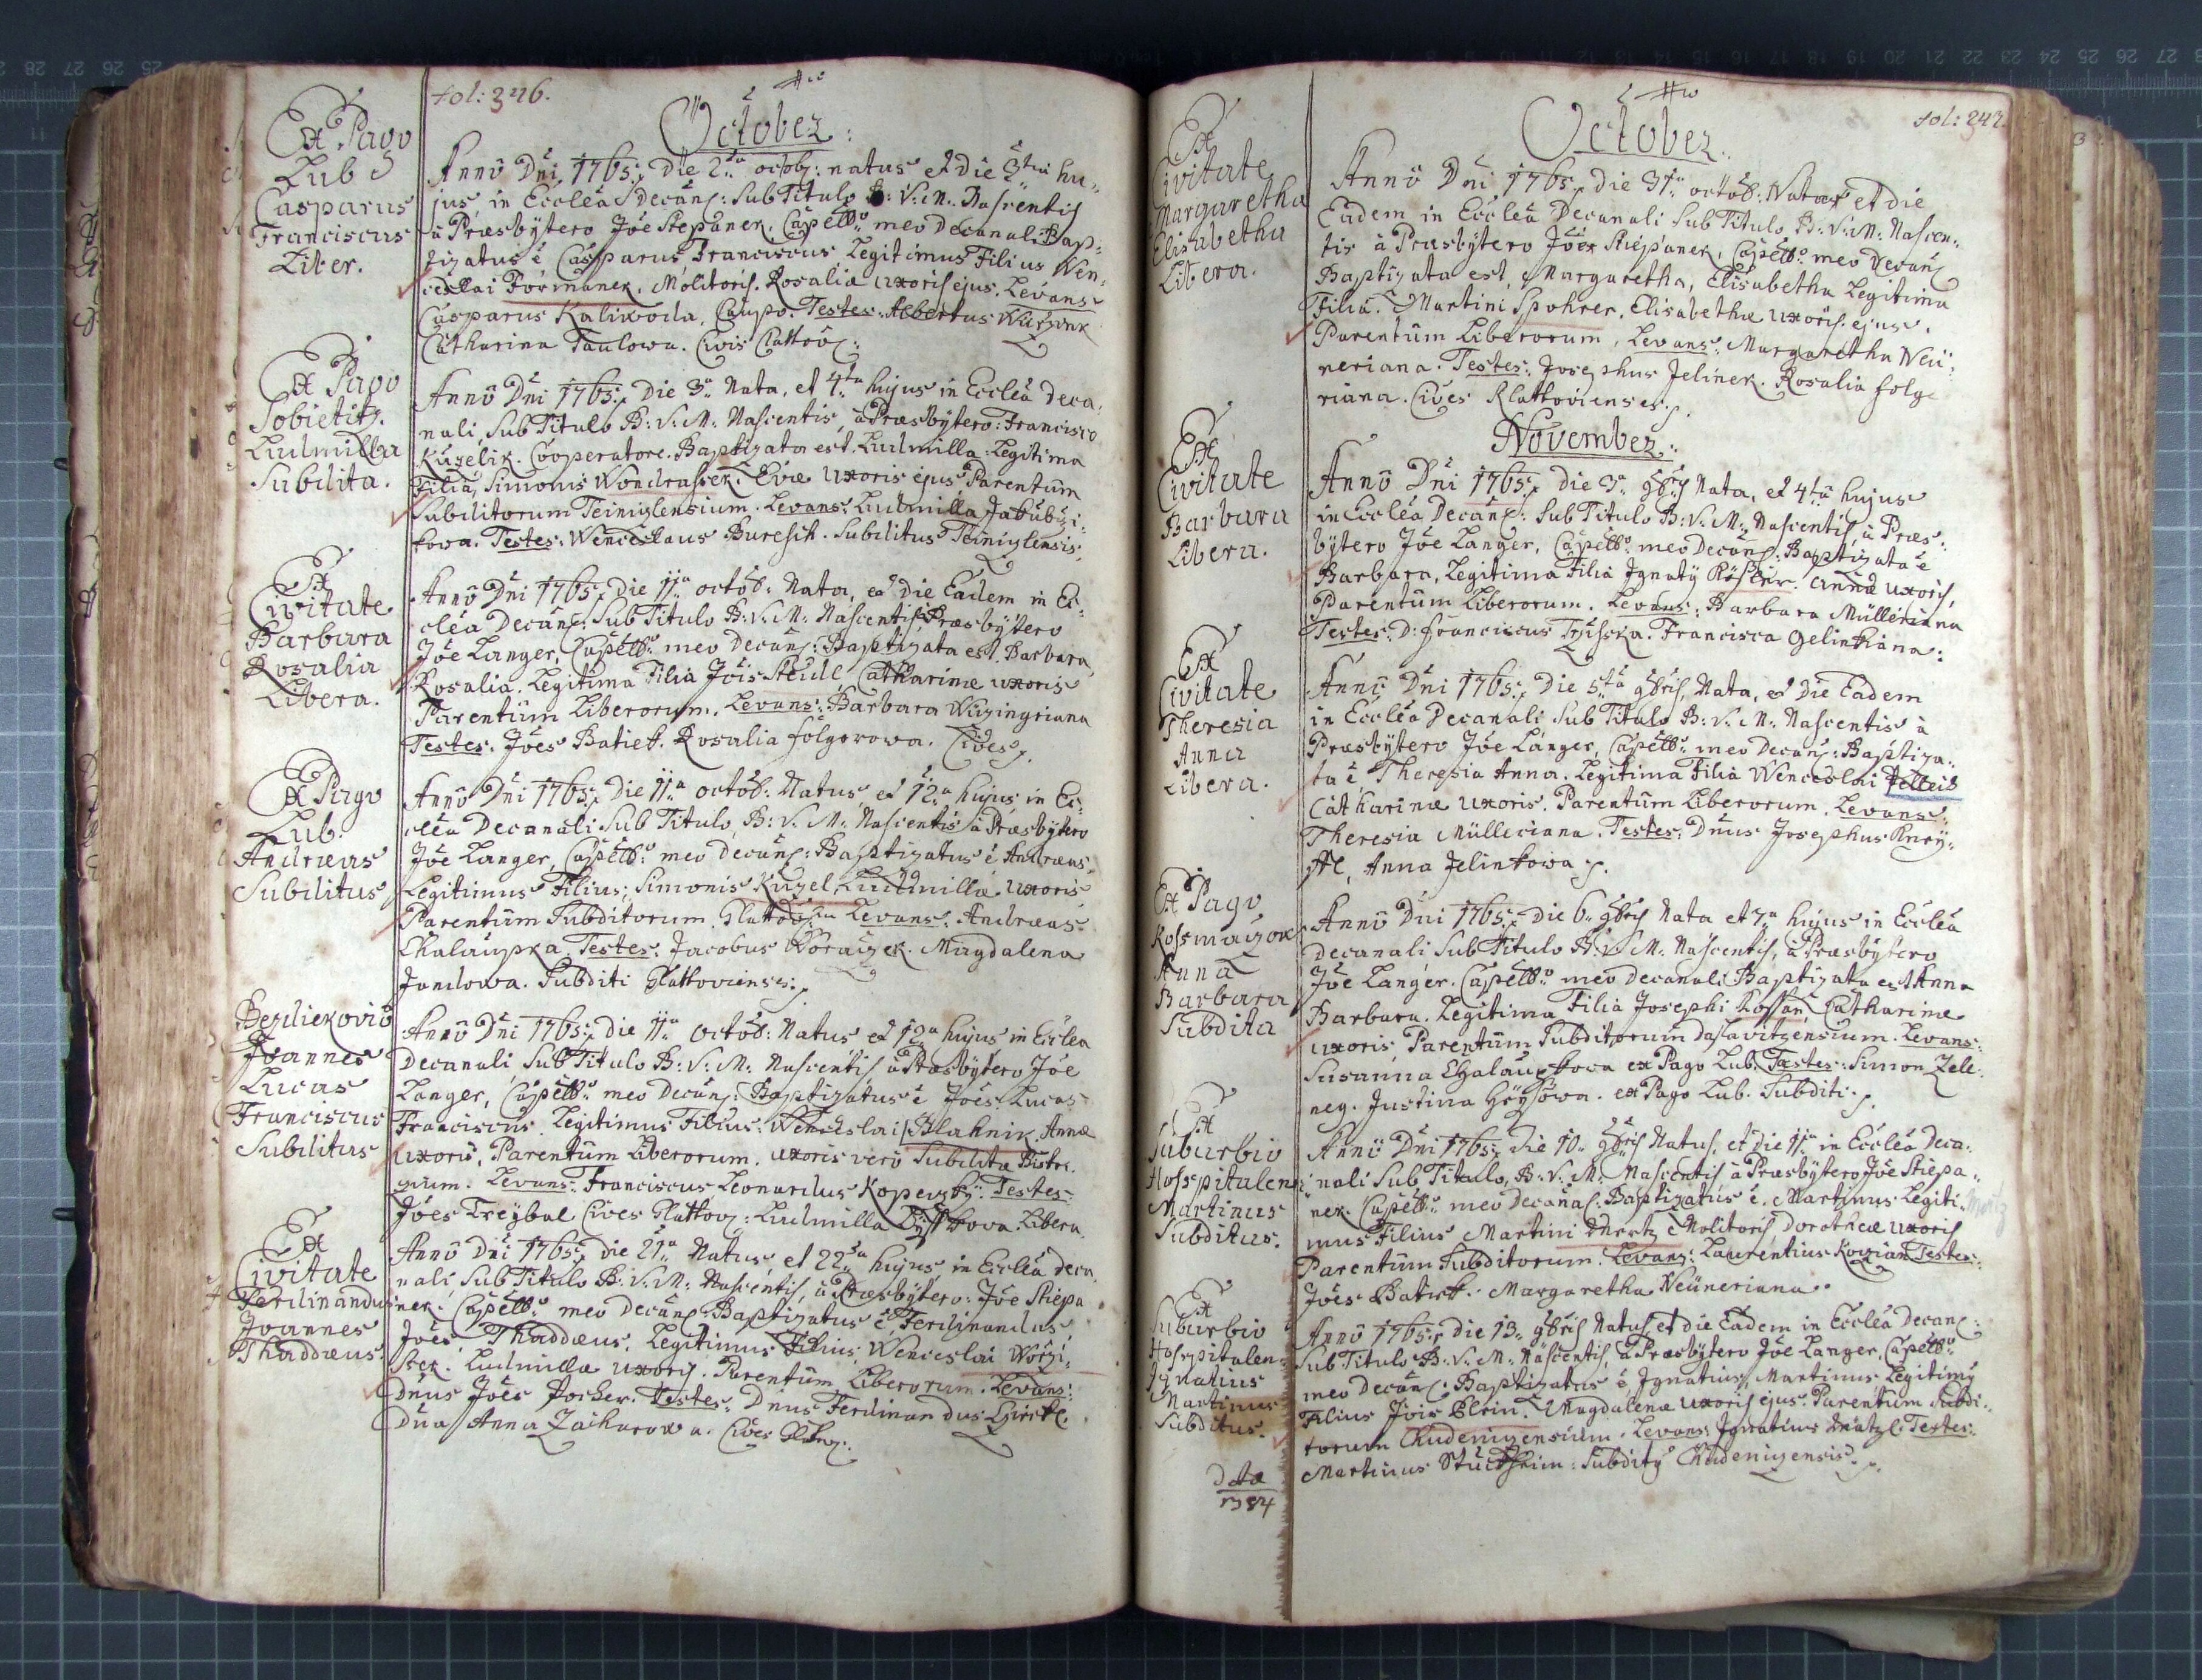 fol: 346.
October:
Ex Pago
Lub
Casparus
Franciscus
Liber.
Anno Dni 1765 Die 2da octob: natus et die 3tia hu„
jus in Ecclea Decan: Sub Titulo B: V: M: Nascentis
a Præsbytero Joe Stepanek, Capello meo Decanali Bap„
tizatus e Casparus Franciscus Legitimus Filius Wen„
ceslai Formanek, Molitoris, Rosaliæ uxoris ejus. Levans
Casparus Kaliwoda, Caupo. Testes: Albertus
Catharina Taulowa. Civis Clattov:
Ex Pago
Sobietitz.
Ludmilla
Subdita.
Anno Dni 1765 Die 3a Nata, et 4ta hujus in Ecclea Deca„
nali, Sub Titulo B: V: M: Nascentis, a Præsbytero: Francisco
Kuzelik. Cooperatore. Baptizata est Ludmilla Legitima
Filia, Simonis Wondrassek. Evæ Uxoris ejus Parentum
Subditorum Teinizlensium. Levans: Ludmilla Jakubczi„
kowa. Testes: Wenceslaus Buresch. Subditus Teinizlensis.
Ex
Civitate
Barbara
Rosalia
Libera.
Anno Dni 1765 die 11a octob: Nata, et die Eadem in Ec„
clea Decan: Sub Titulo B: V: M: Nascentis Præsbytero
Joe Langer, Capello meo Decan: Baptizata est Barbara,
Rosalia. Legitima Filia Jois Steidl Catharinæ uxoris
Parentum Liberorum. Levans: Barbara Wizingriana
Testes: Joes Batiek. Rosalia folgerowa. Cives.
Ex Pago
Lub.
Andræas
Subditus
Anno Dni 1765 Die 11a octob: Natus, et 12a hujus in Ec„
clea Decanali Sub Titulo B: V: M: Nascentis a Præsbytero
Joe Langer, Capello meo Decan: Baptizatus e Andræas
Legitimus Filius, Simonis Kuzel, Ludmillæ uxoris
Parentum Subditorum Glattov: Levans: Andræas
Chalaupka Testes: Jacobus Horaizek. Magdalena
Jandowa. Subditi Glattoviensis.
Bezdiekovio
Joannes
Lucas
Franciscus
Subditus
Anno Dni 1765 die 11a Octob: Natus et 12a hujus in Ecclea
Decanali Sub Titulo B: V: M: Nascentis a Præsbytero Joe
Langer, Capello meo Decan: Baptizatus e Joes Lucas
Franciscus. Legitimus Filius: Wenceslai Blahnik, Annæ
Uxoris, Parentum Liberorum. Uxoris vero Subditæ Bistri„
zium. Levans: Franciscus Leonardus Kopezky. Testes:
Joes Treybal Cives Glattov: Ludmilla Libera.
Ex
Civitate
Ferdinandus
Joannes
Thaddæus.
Anno Dni 1765 die 21a Natus, et 22da hujus, in Ecclea Deca„
nali, Sub Titulo B: V: M: Nascentis, a Præsbytero: Joe Stiepa
nek. Capello meo Decan: Baptizatus e Ferdinandus
Joes, Thaddæus, Legitimus Filius, Wenceslai Worzi„
ssek. Ludmillæ uxoris. Parentum Liberorum. Levans:
Dnus Joes Pocker. Testes: Dnus Ferdinandus
Dna Anna Zacharowa. Cives
fol: 347.
October.
Ex
Civitate
Margaretha
Elisabetha
Libera.
Anno Dni 1765 die 31a octob: Nata et die
Eadem in Ecclea Decanali Sub Titulo B: V: M: Nascen„
tis a Præsbytero Joe Stiepanek, Capello meo Decan:
Baptizata est, Margaretha, Elisabetha Legitima
Filia. Martini Spohrer, Elisabethæ uxoris ejus.
Parentum Liberorum, Levans: Margaretha Neü„
neriana. Testes: Josephus Jelinek. Rosalia folge
riana. Cives Klattovienses.
November:
Ex
Civitate
Barbara
Libera.
Anno Dni 1765 die 3a 9bris Nata, et 4ta hujus
in Ecclea Decan: Sub Titulo B: V: M: Nascentis, a Præs„
bytero Joe Langer, Capello meo Decan: Baptizata e
Barbara, Legitima Filia Ignaty Annæ uxoris,
Parentum Liberorum. Levans: Barbara Mülleriana
Testes: D: Franciscus Francisca Gelinkiana:
Ex
Civitate
Theresia
Anna
Libera.
Anno Dni 1765 Die 5ta 9bris, Nata, et Die Eadem
in Ecclea Decanali Sub Titulo B: V: M: Nascentis a
Præsbytero Joe Langer, Capello meo Decan: Baptiza„
ta e Theresia Anna. Legitima Filia Wenceslai
Catharinæ uxoris. Parentum Liberorum. Levans:
Theresia Mülleriana. Testes: Dnus Josephus
Anna Jelinkowa.
Ex Pago
Kossmazok
Anna
Barbara
Subdita
Anno Dni 1765 Die 6a 9bris Nata et 7a hujus in Ecclea
Decanali Sub Titulo B: V: M: Nascentis, a Præsbytero
Joe Langer. Capello meo Decanali Baptizata est Anna
Barbara. Legitima Filia Josephi Kossan, Catharinæ
uxoris, Parentum Subditorum Dolavitzensium. Levans:
Susanna Chalaupkova ex Pago Lub. Testes: Simon Zele„
neg. Justina ex Pago Lub. Subditi.
Ex
Suburbio
Hosspitalensi
Martinus
Subditus.
Anno Dni 1765 die 10a 9bris Natus, et die 11a in Ecclea Deca„
nali Sub Titulo, B: V: M: Nascentis a Præsbytero Joe Stiepa„
nek. Capello meo Decanal: Baptizatus e. Martinus Legiti„
mus Filius Martini Mertz Molitoris, Dorotheæ uxoris
Parentum Subditorum. Levans: Laurentius Testes:
Joes Batiek. Margaretha Neüneriana.
Ex
Suburbio
Hospitalen„
Ignatius
Martinus
Subditus.
Anno 1765 die 13a 9bris Natus, et die Eadem in Ecclea Decan:
Sub Titulo B: V: M: Nascentis, a Præsbytero Joe Langer, Capello
meo Decan: Baptizatus e Ignatius, Martinus Legitimy
Filius Jois Magdalenæ uxoris ejus. Parentum Subdi„
torum Chudenizensium. Levans: Ignatius Testes:
Martinus Subdity Chudenizensis.